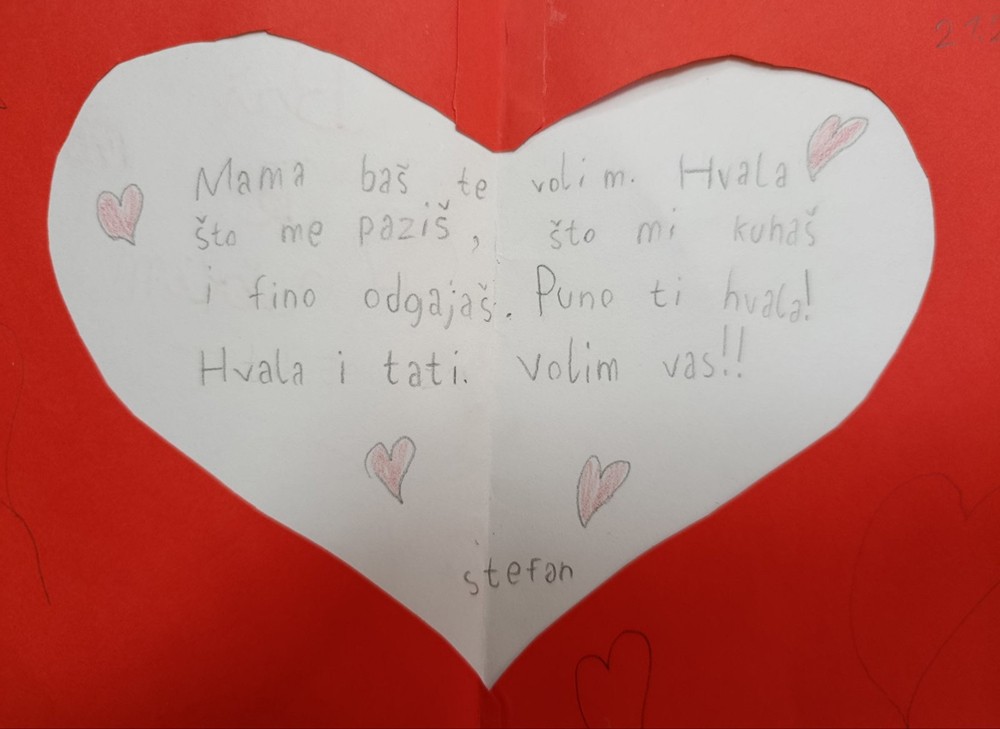 Mama baš te volim. Hvala
što me paziš, što mi kuhaš
i fino odgajaš. Puno ti hvala!
Hvala i tati. Volim vas!!
stefan